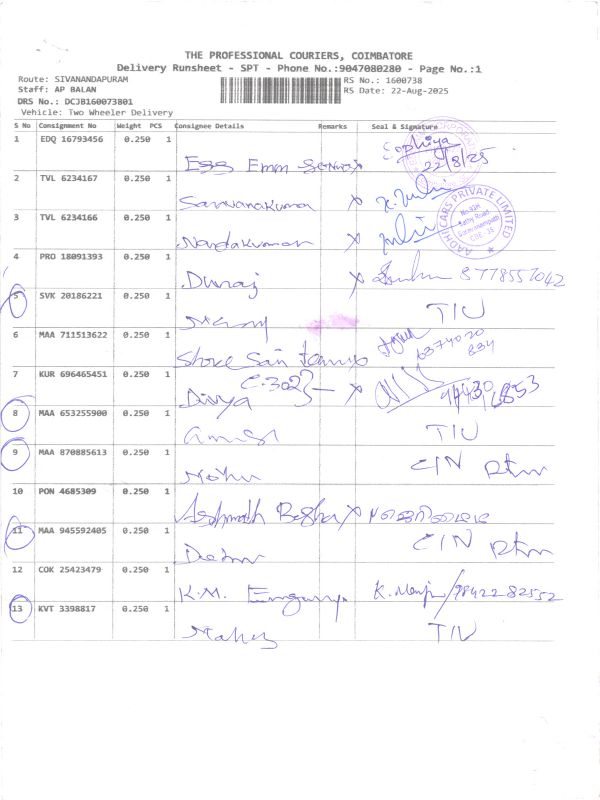 THE PROFESSIONAL COURIERS, COIMBATORE
Delivery Runsheet - SPT - Phone No.:9047080280 - Page No.:1
Route: SIVANANDAPURAM
RS No.: 1600738
Staff: AP BALAN
RS Date: 22-Aug-2025
DRS No.: DCJB160073801
Vehicle: Two Wheeler Delivery
S No Consignment No Weight PCS Consignee Details Remarks Seal & Signature
1 EDQ 16793456 0.250 1 Sophiya
22/8/25
2 TVL 6234167 0.250 1 Sarvanakumar x
AADHI CABS PRIVATE LIMITED
3 TVL 6234166 0.250 1 Nandakumar x
4 PRO 18091393 0.250 1 Durai x 8778557042
5 SVK 20186221 0.250 1 TIU
6 MAA 711513622 0.250 1 Shove San
6374020
834
7 KUR 696465451 0.250 1 Divya x
8 MAA 653255900 0.250 1 TIU
9 MAA 870885613 0.250 1 CIN Rtn
10 PON 4685309 0.250 1 x
11 MAA 945592405 0.250 1 CIN Rtn
12 COK 25423479 0.250 1 K.M. 9842282552
13 KVT 3398817 0.250 1 TIU